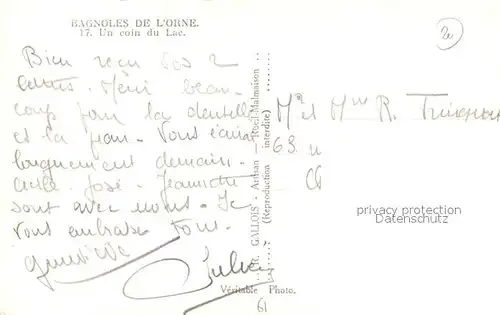 BAGNOLES DE L'ORNE.
17. Un coin du Lac.
Bien reçu vos 2
lettres. Merci beau-
coup pour la dentelle
et la
Vous écrirai
longuement demain.
José - Jeannette
sont avec nous. Je
vous embrasse tous.
Geneviève
R. GALLOIS - Artisan - Rueil-Malmaison
(Reproduction interdite)
Véritable Photo.
Mr et Mme R.
63
privacy protection
Datenschutz
61